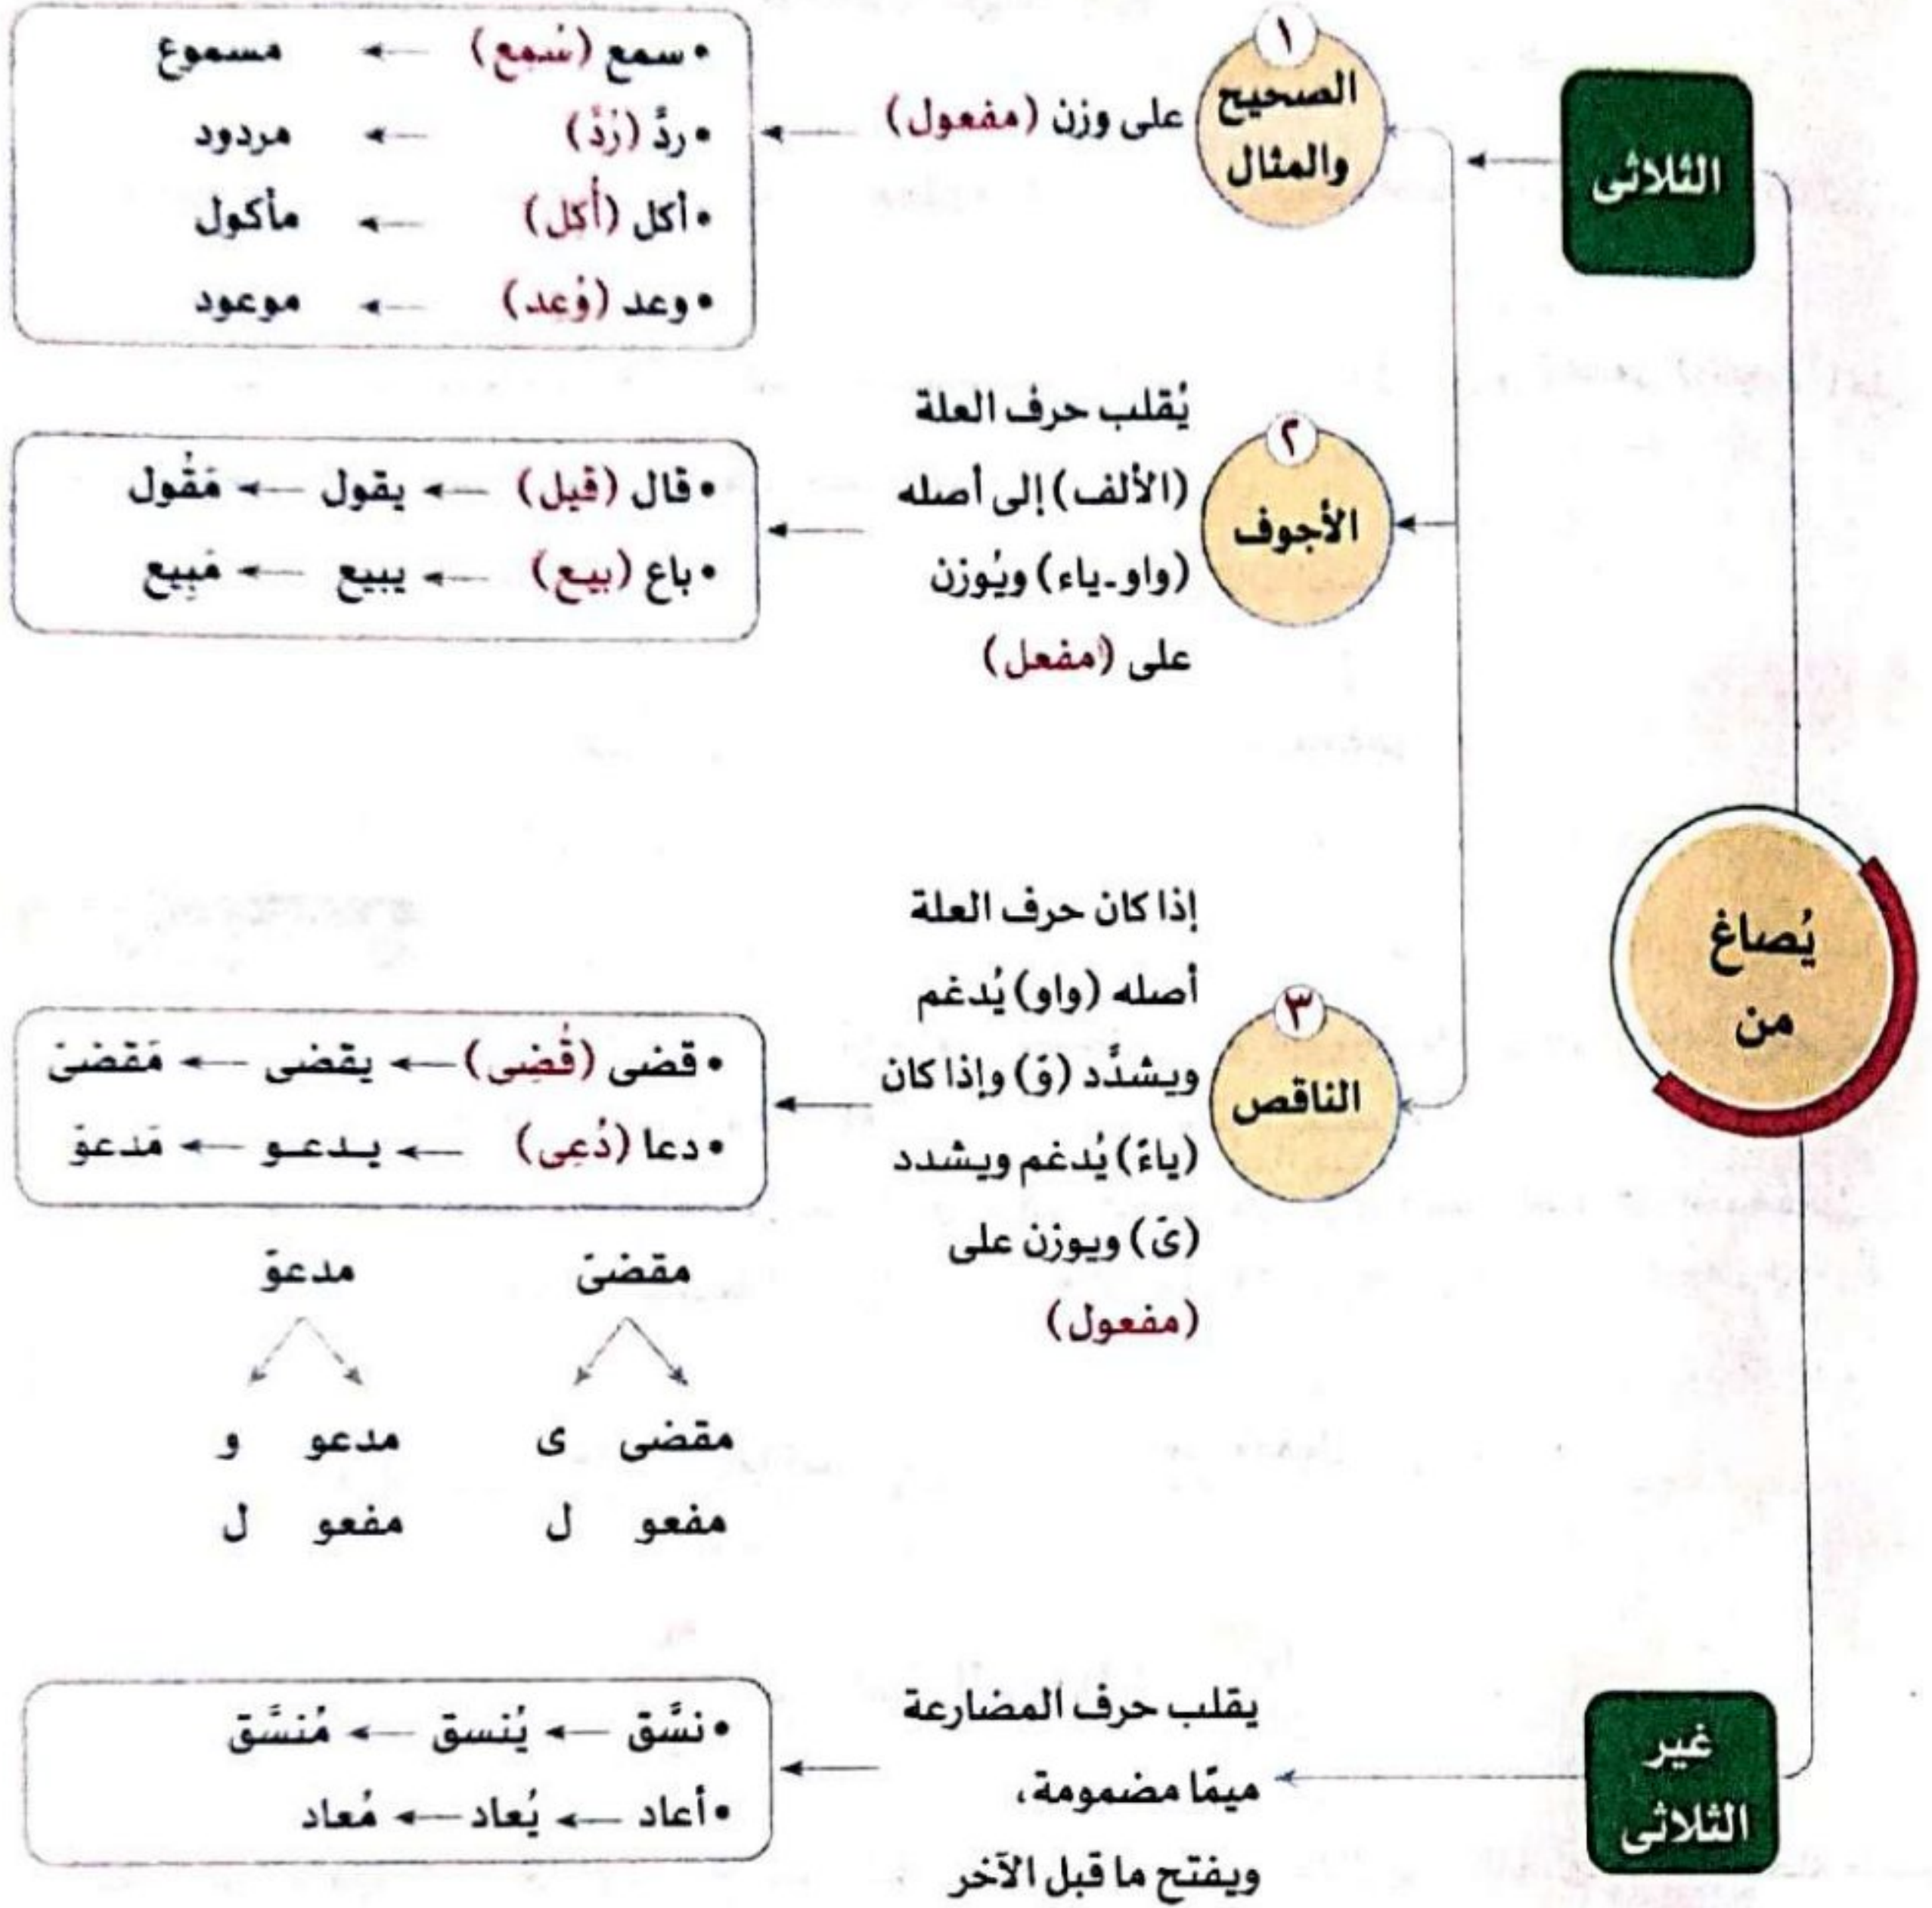 يُصاغ
من
الثلاثى
١
الصحيح
والمثال
على وزن (مفعول)
• سمع (سُمِع) ← مسموع
• ردَّ (رُدَّ) ← مردود
• أكل (أُكِل) ← مأكول
• وعد (وُعِد) ← موعود
٢
الأجوف
يُقلب حرف العلة
(الألف) إلى أصله
(واو-ياء) ويُوزن
على (مفعل)
• قال (قيل) ← يقول ← مَقُول
• باع (بيع) ← يبيع ← مَبِيع
٣
الناقص
إذا كان حرف العلة
أصله (واو) يُدغم
ويشدَّد (وّ) وإذا كان
(ياءً) يُدغم ويشدد
(ىّ) ويوزن على
(مفعول)
• قضى (قُضِى) ← يقضى ← مَقضىّ
• دعا (دُعِى) ← يدعو ← مَدعوّ
مقضىّ مدعوّ
مقضى ى مدعو و
مفعو ل مفعو ل
غير
الثلاثى
يقلب حرف المضارعة
ميمًا مضمومة،
ويفتح ما قبل الآخر
• نسَّق ← يُنسق ← مُنسَّق
• أعاد ← يُعاد ← مُعاد